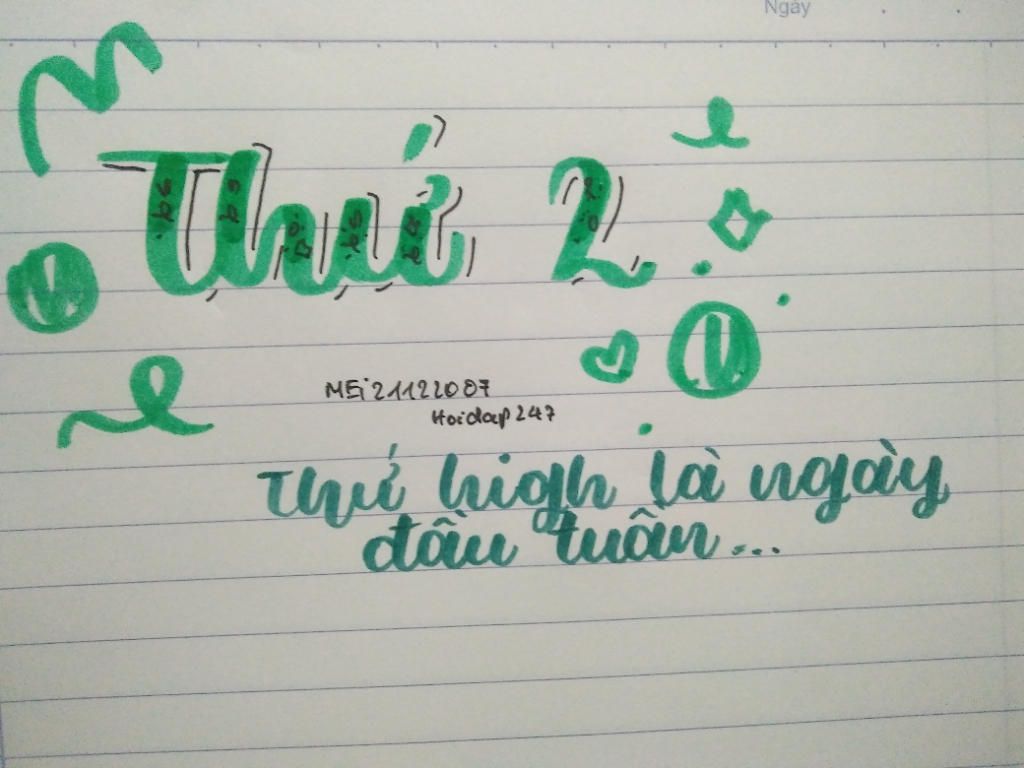 Ngày
Thứ 2
MEi21122007
Hoidap247
Thứ high là ngày
đầu tuần...